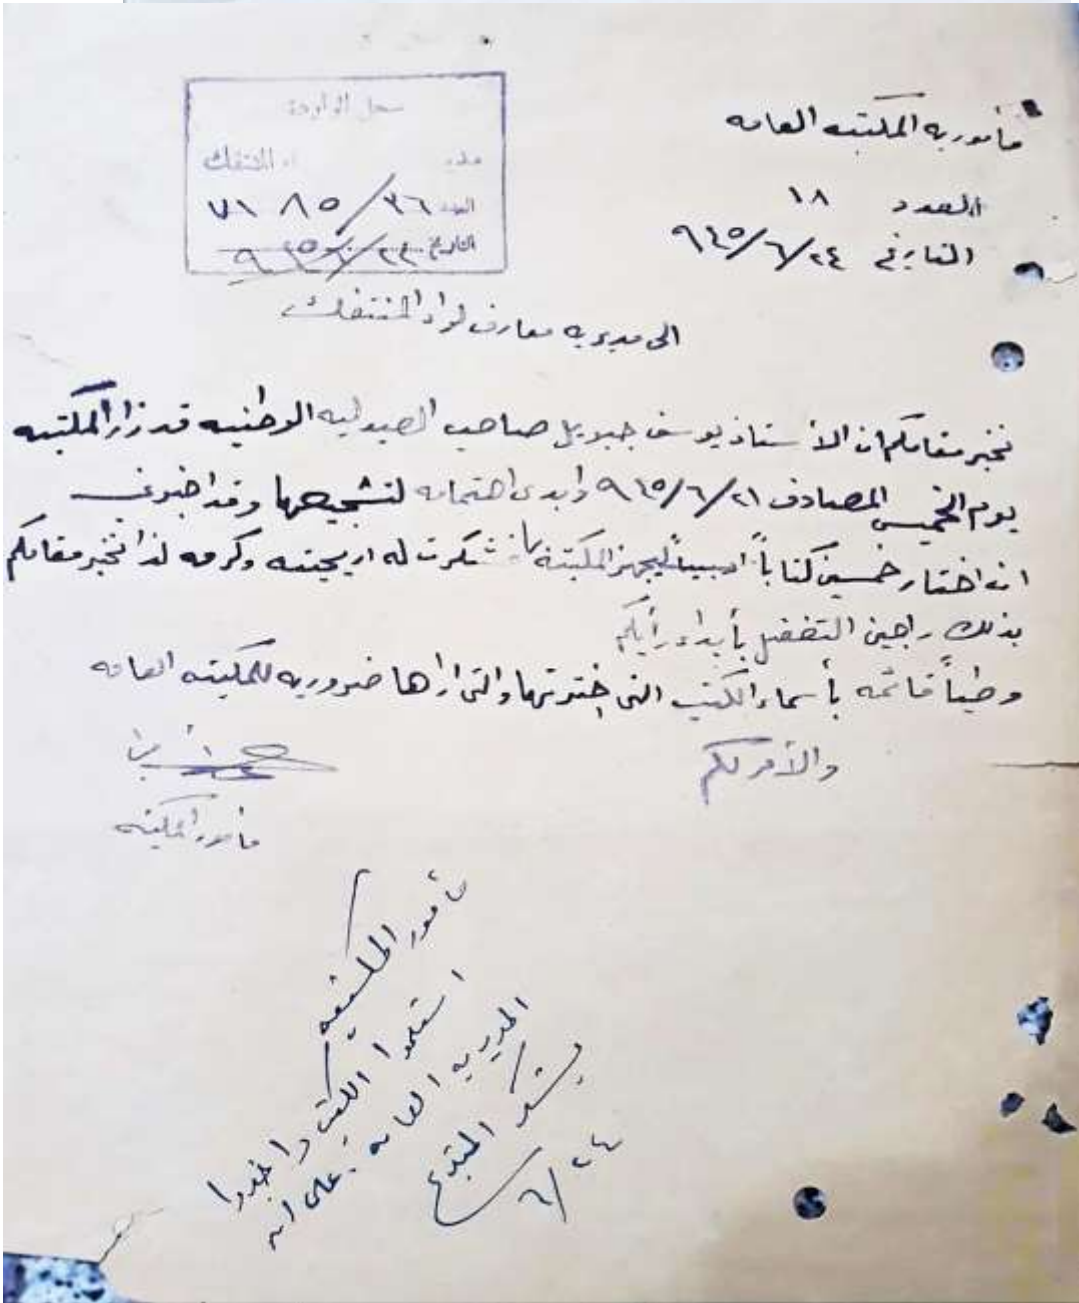 مأموريه المكتبه العامه
العدد ١٨
التاريخ ٩٤٥/٦/٢٤
سجل الواردة
المنتفك
العدد ٣٦/٨٥ ٧١
التاريخ ٩٤٥/٦/٢٤
الى مديريه معارف لواء المنتفك
نخبر مقامكم ان الاستاذ يوسف جبويل صاحب الصيدليه الوطنيه قد زار المكتبه
يوم الخميس المصادف ٩٤٥/٦/٢١ وابدى اهتمامه لتشجيعها وقد اخبرني
انه اختار خمسين كتاباً ادبيياً ليجهز المكتبه بها شكرت له اريحيته وكرمه لذا نخبر مقامكم
بذلك راجين التفضل بأبداء رأيكم
وطياً قائمه بأسماء الكتب التي اخترتها والتي اراها ضروريه للمكتبه العامه
والأمر لكم
مأمور المكتبه
مأمور المكتبه
استلموا الكتب واخبروا
المديريه العامه. على انه
يشكر المتبرع
٦/٢٤